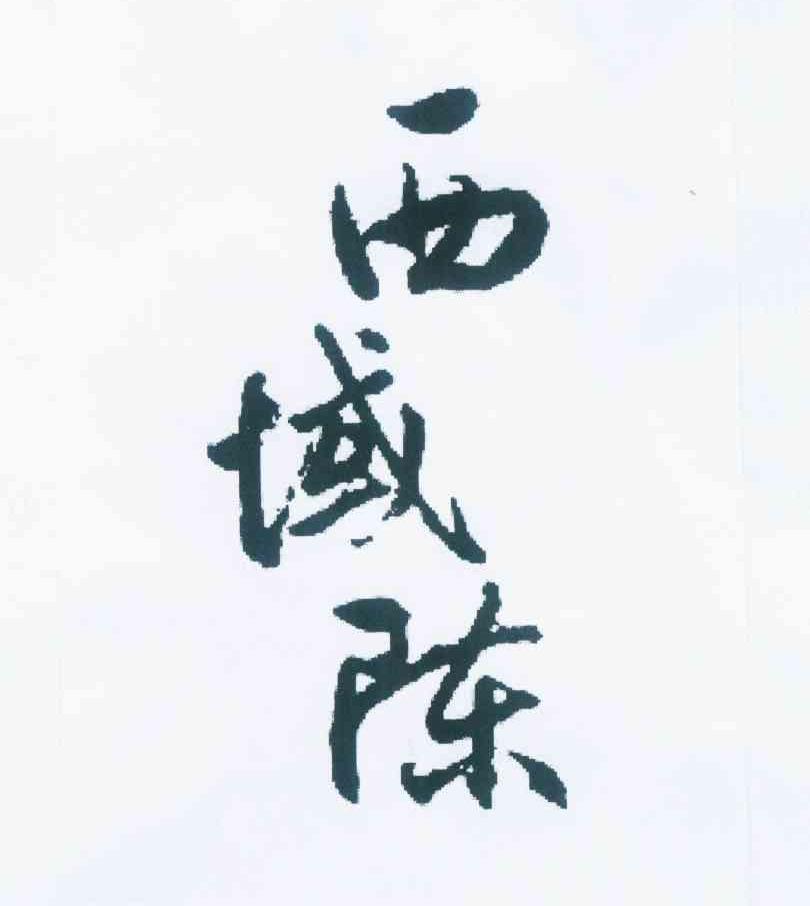 西域陈